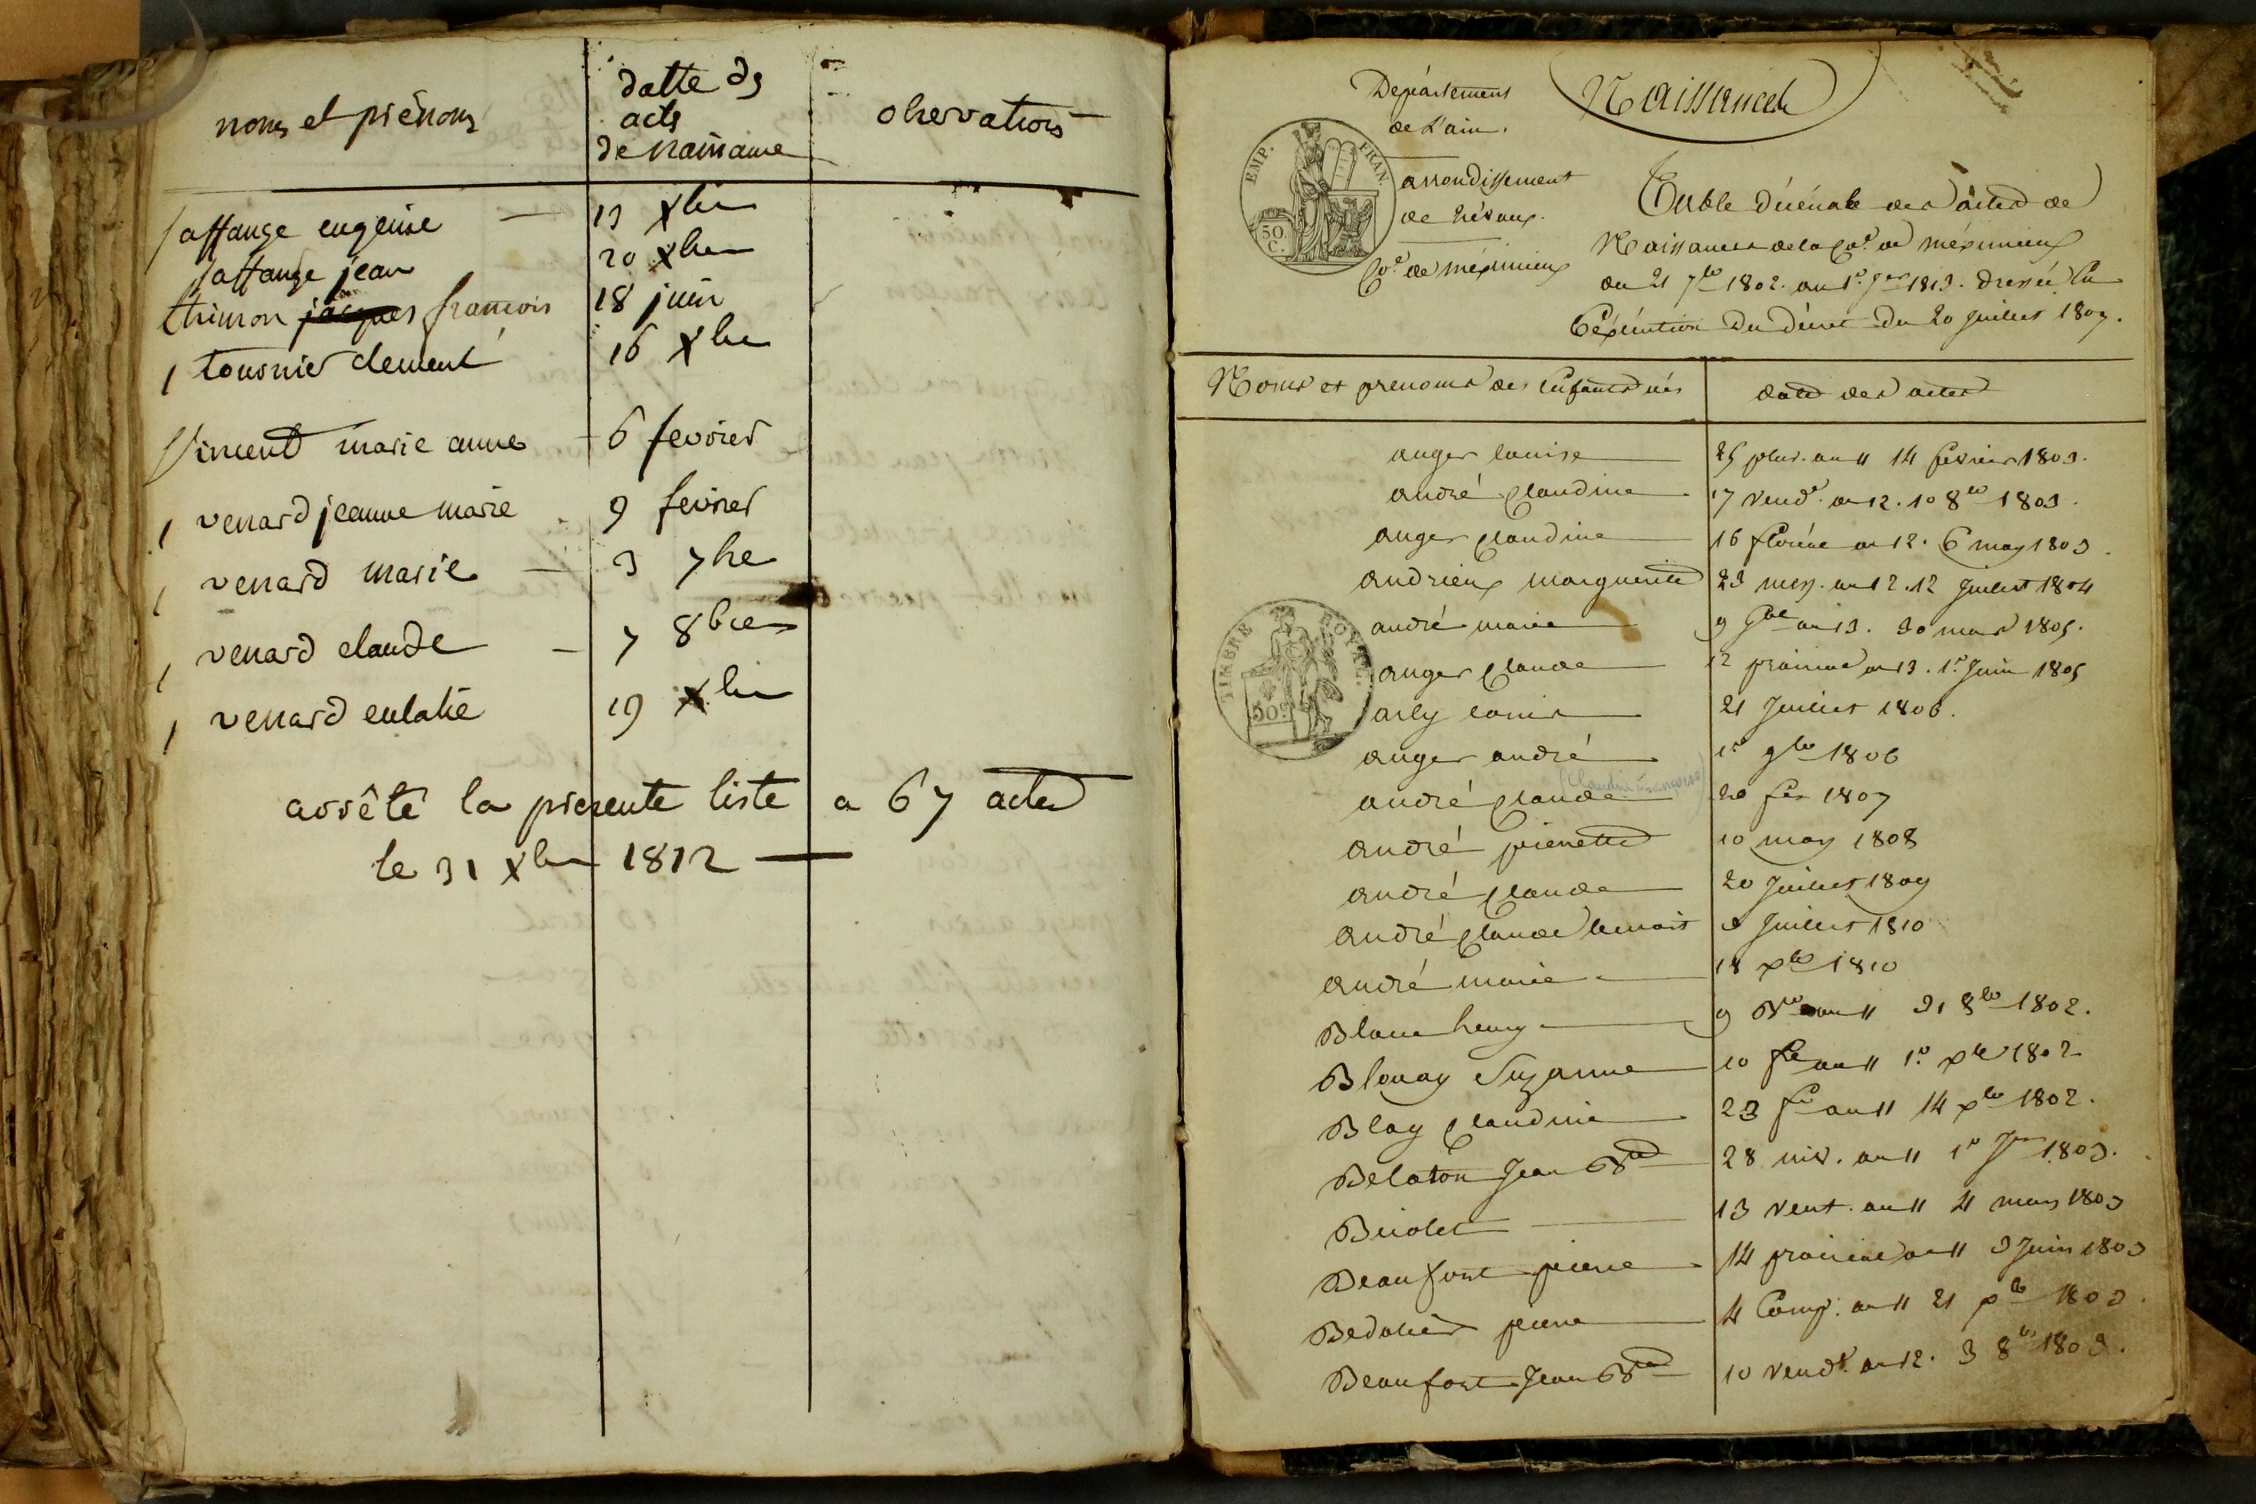 noms et prénoms
datte ds
acts
de naissance
observations
saffange eugenie — 13 Xbre
saffange jean 20 Xbre
thimon jacques francois 18 juin
tournier clement 16 Xbre
Vincend marie anne - 6 fevrier
venard jeanne marie - 9 fevrier
venard marie — 3 7bre
venard claude — 7 8bre
venard eulalie 19 Xbre
arrêté la presente liste a 67 actes
le 31 Xbre 1812 —
Departement
de L'ain.
Naissances
EMP. FRAN.
50 C.
arrondissement
de trévoux.
Coe de meximieux
Table décénale des actes de
Naissances de la Coe de méximieux
du 21 7bre 1802. au 1er Jer 1813. dressée En
Exécution du décret du 20 juillet 1807.
Noms et prenoms des Enfants nés
date des actes
auger louise 25 pluv. an 11 14 fevrier 1803.
andré Claudine 17 vendre an 12. 10 8bre 1803.
auger Claudine 16 floréal an 12. 6 may 1803.
andrieux marguerite 23 mess. an 12. 12 Juillet 1804
TIMBRE ROYAL.
50c
andré marie 9 Gal an 13. 30 mars 1805.
auger Claude 12 prairial an 13. 1er Juin 1805
arly louis 21 Juillet 1806.
auger andré 1er 9bre 1806
(Claudine françoise)
andré Claude 20 fer 1807
andré pierrette 10 may 1808
andré Claude 20 Juillet 1809
andré Claude benoit 9 Juillet 1810
andré marie 18 xbre 1810
Blanc henry 9 Bre an 11 31 8bre 1802.
Blonay Suzanne 10 fre an 11 1er xbre 1802
Blay Claudine 23 fre an 11 14 xbre 1802.
Belaton Jean Bte 28 niv. an 11 1er Jer 1803.
Biriolet 13 vent. an 11 4 mars 1803
Beaufort pierre 14 prairial an 11 3 Juin 1803
Bedoties pierre 4 Comp. an 11 21 xbre 1803.
Beaufort Jean Bte 10 vendre an 12. 3 8bre 1803.